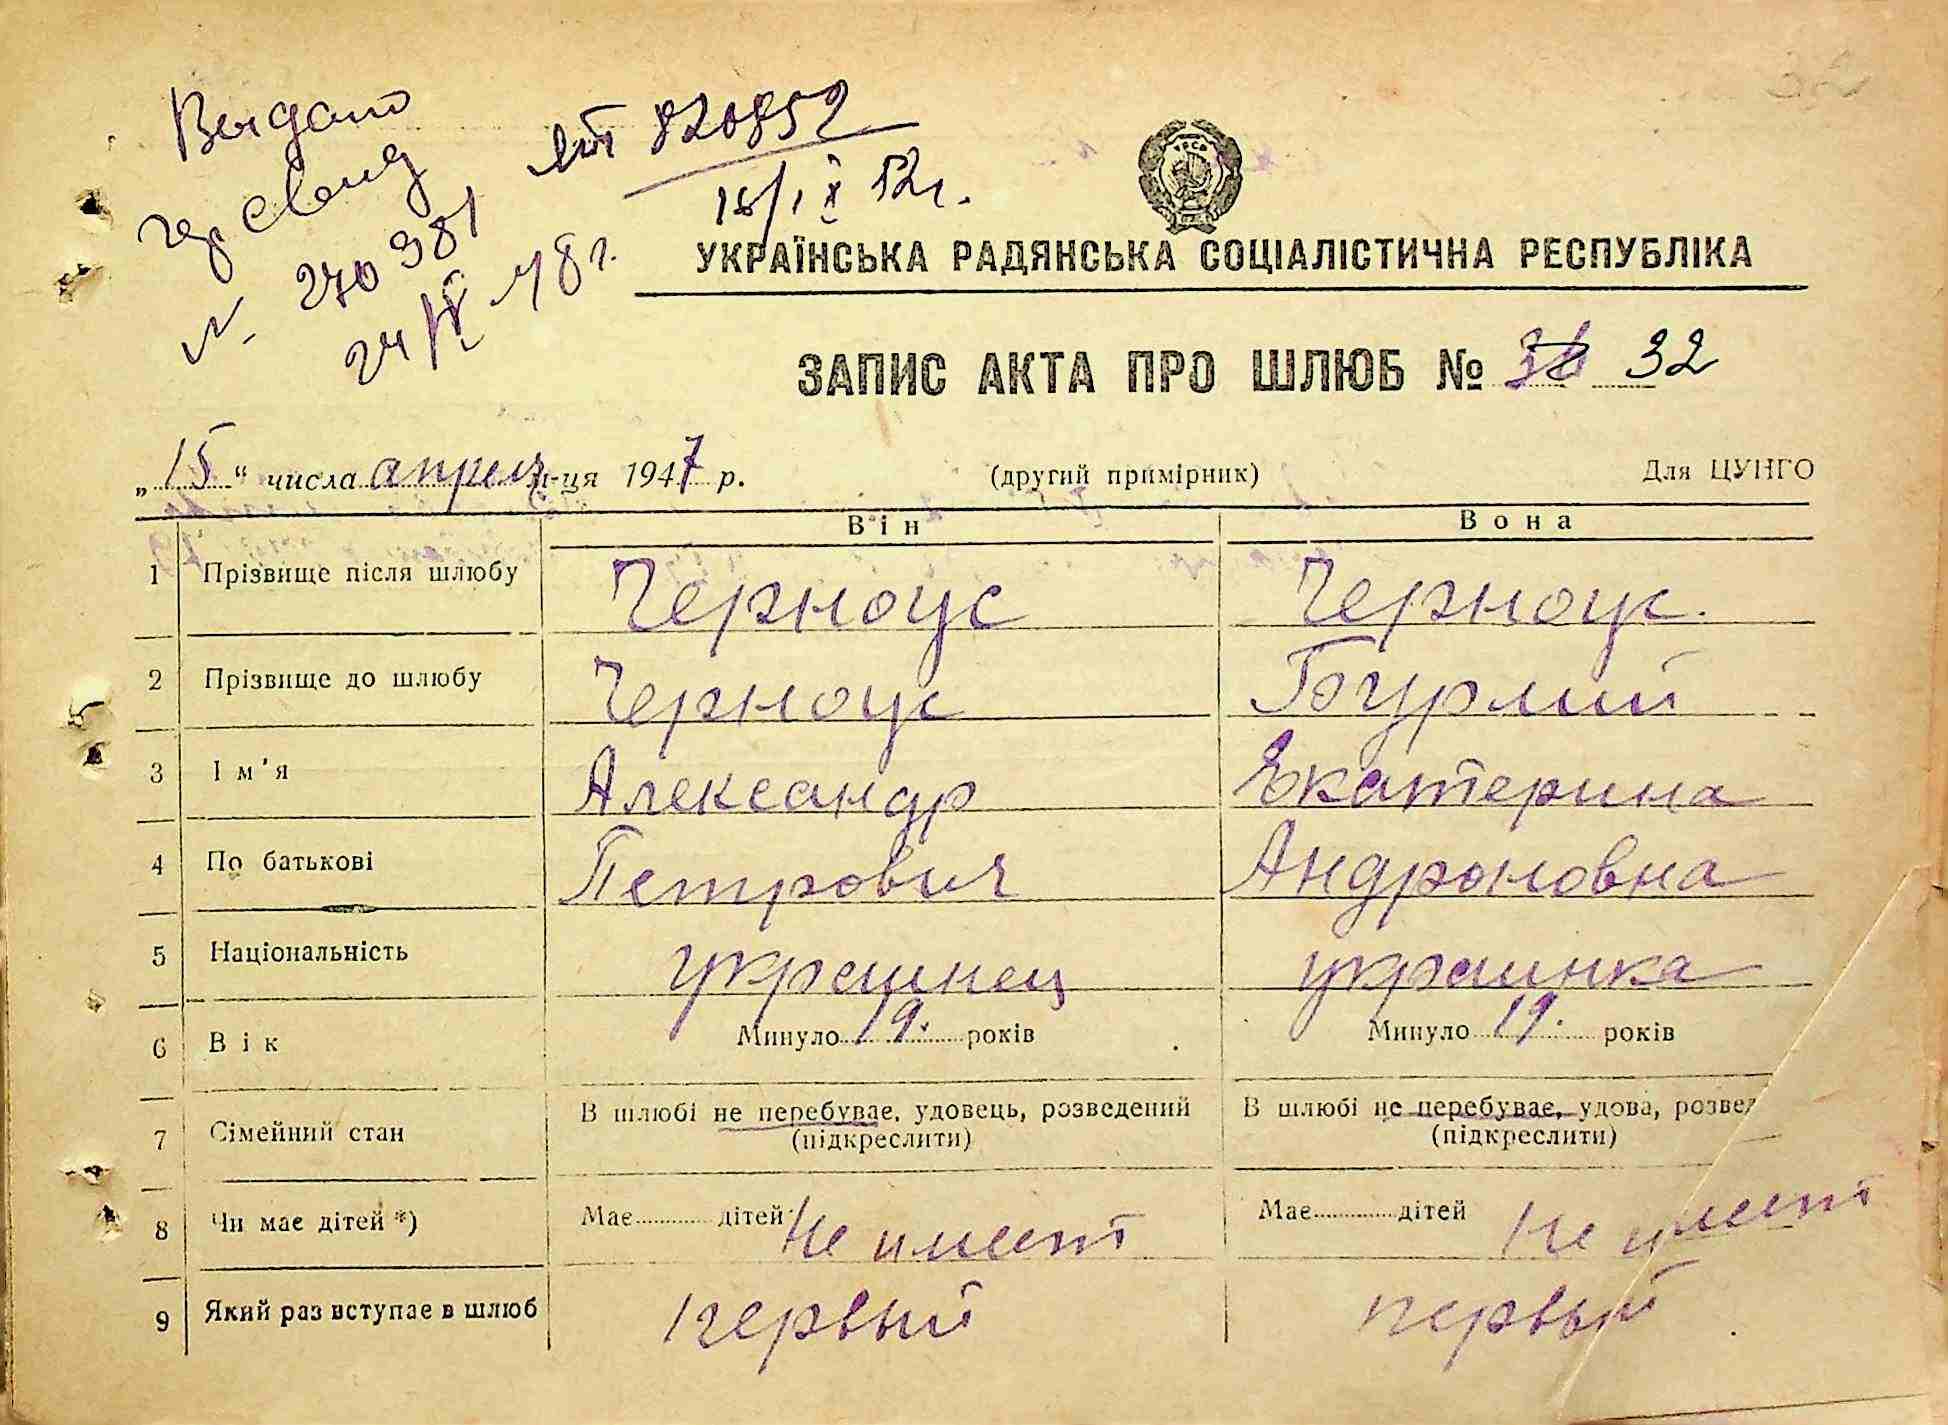 Выдано
ЯТ 820852
18/IX 52 г.
№ 270381
24/IV 48 г.
УКРАЇНСЬКА РАДЯНСЬКА СОЦІАЛІСТИЧНА РЕСПУБЛІКА
ЗАПИС АКТА ПРО ШЛЮБ № 32
„15“ числа апреля м-ця 1947 р. (другий примірник) Для ЦУНГО
Він Вона
1 Прізвище після шлюбу Черноус Черноус.
2 Прізвище до шлюбу Черноус Бурлий
3 Ім'я Александр Екатерина
4 По батькові Петрович Андроновна
5 Національність украинец украинка
6 Вік Минуло 19. років Минуло 19. років
7 Сімейний стан В шлюбі не перебуває, удовець, розведений В шлюбі не перебуває, удова, розвед
(підкреслити) (підкреслити)
8 Чи має дітей *) Має дітей Не имеет Має дітей Не имеет
9 Який раз вступає в шлюб первый первый